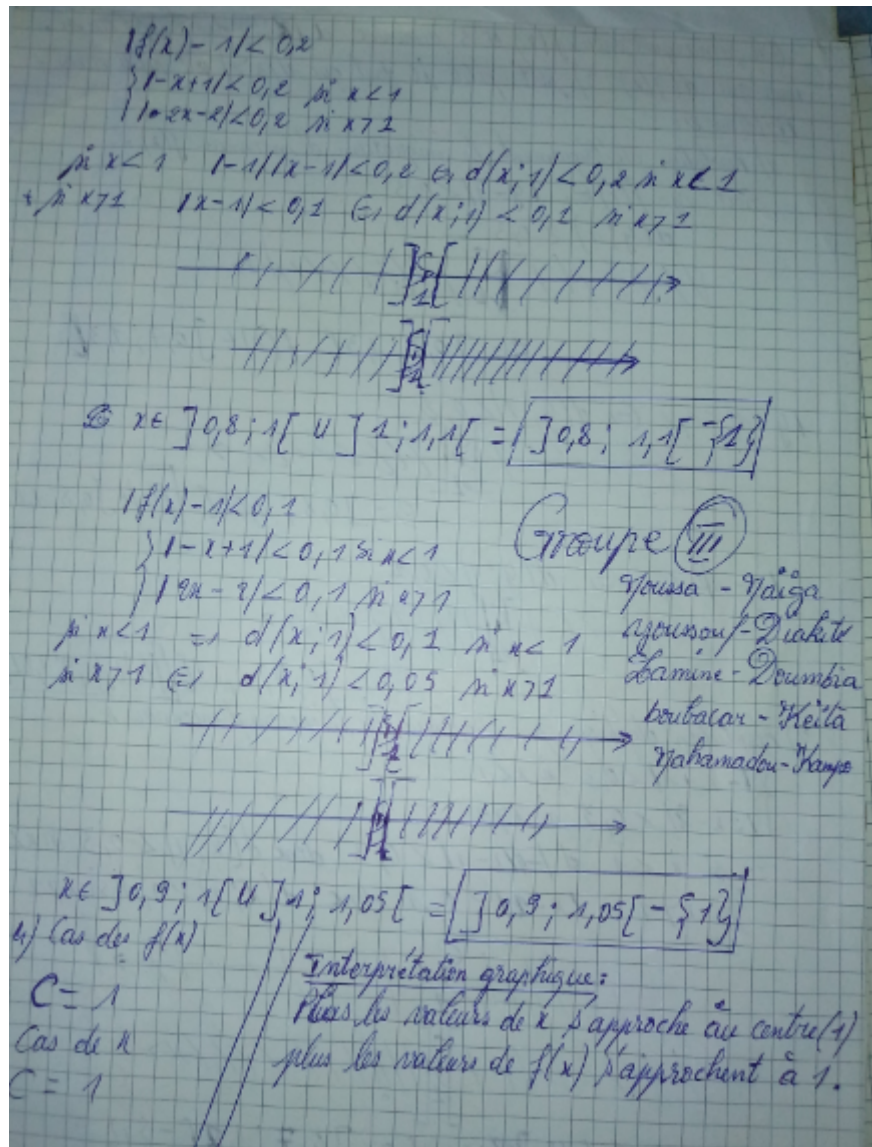 |f(x)-1|<0,2
{|-x+1|<0,2 si x<1
|2x-2|<0,2 si x>1
si x<1 |-1||x-1|<0,2 ⟺ d(x;1)<0,2 si x<1
si x>1 |x-1|<0,1 ⟺ d(x;1)<0,1 si x>1
1
1
x∈ ]0,8;1[ U ]1;1,1[ = ]0,8; 1,1[ -{1}
|f(x)-1|<0,1
{|-x+1|<0,1 si x<1
|2x-2|<0,1 si x>1
si x<1 ⟹ d(x;1)<0,1 si x<1
si x>1 ⟺ d(x;1)<0,05 si x>1
Groupe III
Moussa - Maïga
Youssouf - Diakité
Lamine - Doumbia
boubacar - Keïta
Mahamadou - Kampo
1
1
x∈ ]0,9;1[ U ]1; 1,05[ = ]0,9; 1,05[ - {1}
4) Cas des f(x)
C = 1
Cas de x
C = 1
Interprétation graphique:
Plus les valeurs de x s'approche au centre (1)
plus les valeurs de f(x) s'approchent à 1.